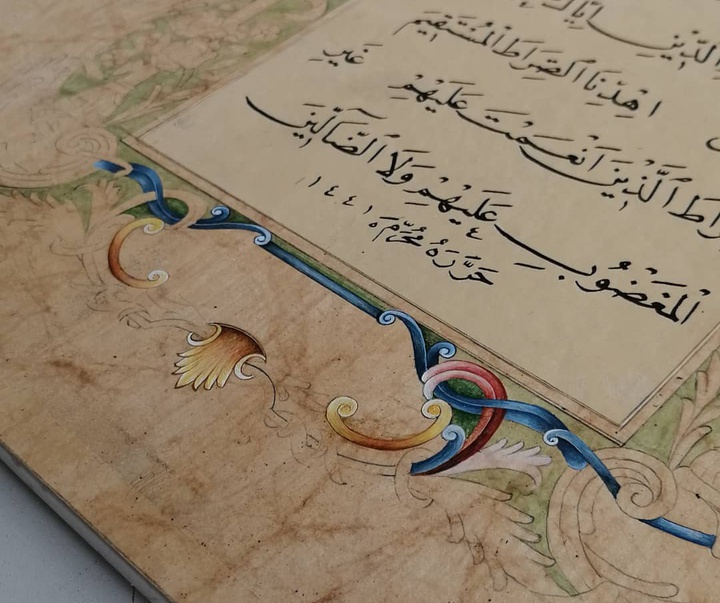 الدِّينِ إِيَّاكَ
اِهْدِنَا الصِّرَاطَ الْمُسْتَقِيمَ
رَاطَ الَّذِينَ اَنْعَمْتَ عَلَيْهِمْ غَيْرِ
الْمَغْضُوبِ عَلَيْهِمْ وَلَا الضَّالِّينَ
حَرَّرَهُ مُحَرَّم ١٤٤١